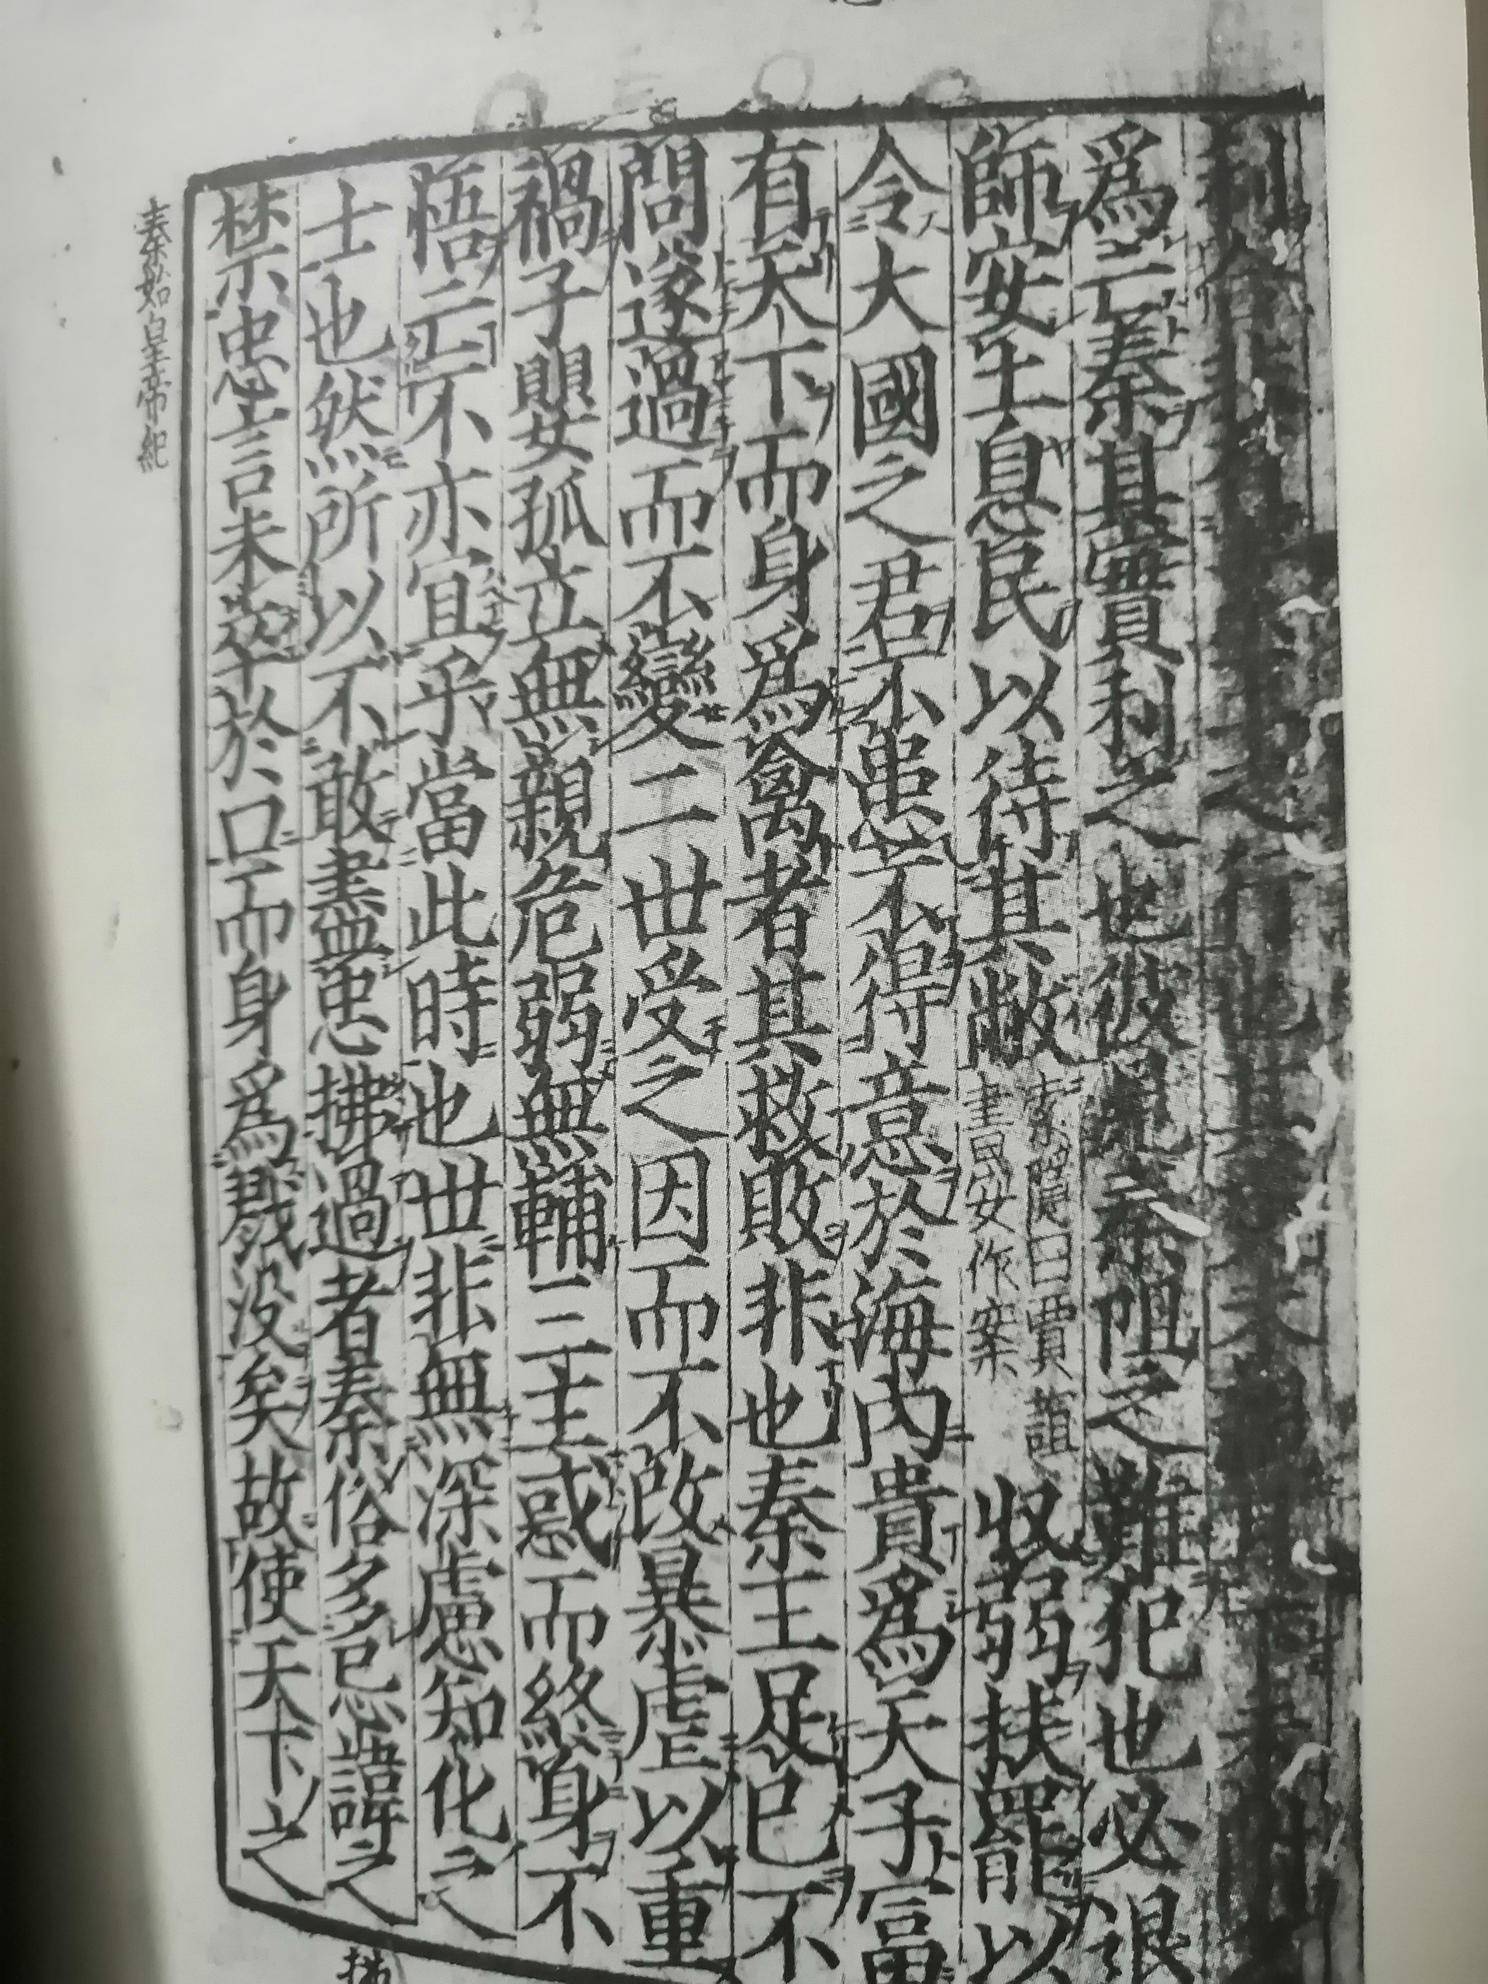 利合
爲亡秦其實利之也彼見秦阻之難犯也必退
師安土息民以待其敝索隱曰賈誼書安作案收弱扶罷以
令大國之君不患不得意於海内貴爲天子富
有天下而身爲禽者其救敗非也秦王足已不
問遂過而不變二世受之因而不改暴虐以重
禍子嬰孤立無親危弱無輔三主惑而終身不
悟亡不亦宜乎當此時也世非無深慮知化之
士也然所以不敢盡忠拂過者秦俗多忌諱之
禁忠言未卒於口而身爲戮没矣故使天下之
秦始皇帝紀
拂